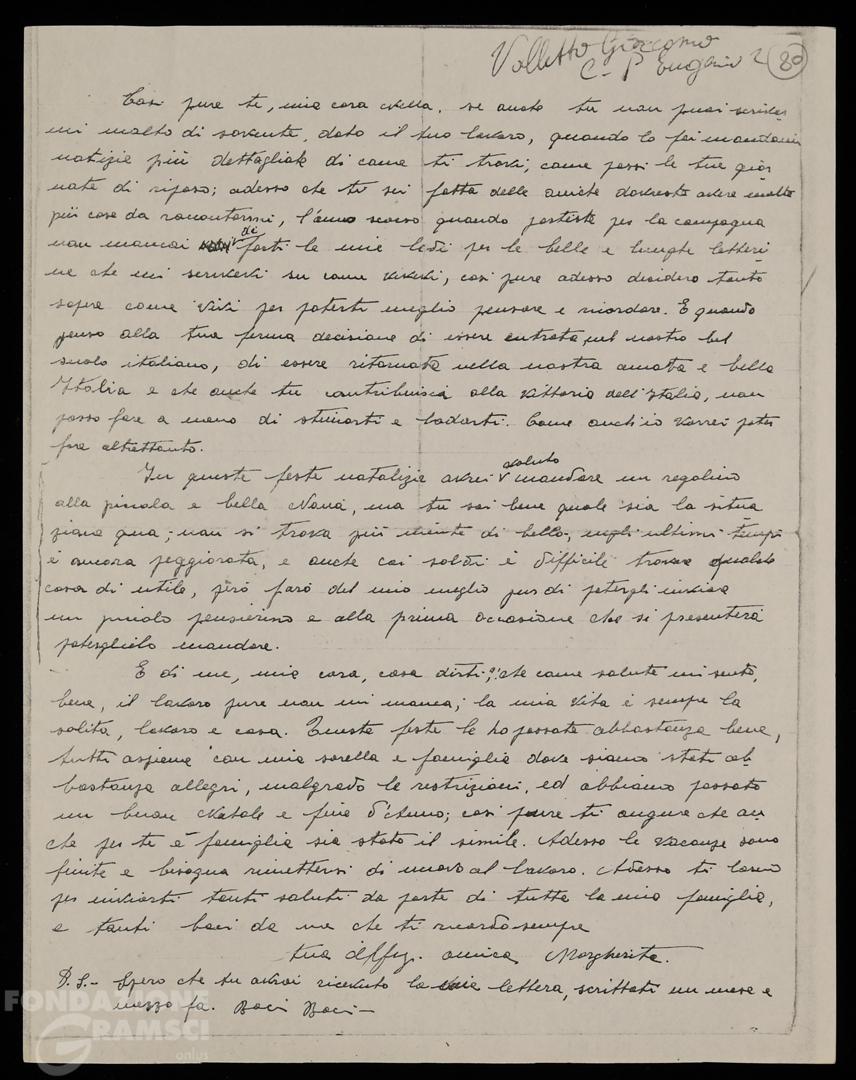 Volletto Giacomo
C. P Eugenio 2 (80)
Così pure te, mia cara Nella, se anche tu non puoi scriver
mi molto di sovente, dato il tuo lavoro, quando lo fai mandami
notizie più dettagliate di come ti trovi, come passi le tue gior
nate di riposo; adesso che ti sei fatta delle amiche dovresti avere molte
più cose da raccontarmi, l'anno scorso quando partiste per la campagna
non mancai di farti le mie lodi per le belle e lunghe letteri
ne che mi scrivevi su come vivevi, così pure adesso desidero tanto
sapere come vivi per poterti meglio pensare e ricordare. E quando
penso alla tua ferma decisione di essere entrata nel nostro bel
suolo italiano, di essere ritornata nella nostra amata e bella
Italia e che anche tu contribuisci alla vittoria dell'Italia, non
posso fare a meno di stimarti e lodarti. Come anch'io vorrei poter
fare altrettanto.
In queste feste natalizie avrei voluto mandare un regalino
alla piccola e bella Nana, ma tu sai bene quale sia la situa
zione qua; non si trova più niente di bello, negli ultimi tempi
è ancora peggiorata, e anche coi soldi è difficile trovare qualche
cosa di utile, però farò del mio meglio pur di potergli inviare
un piccolo pensierino e alla prima occasione che si presenterà
poterglielo mandare.
E di me, mia cara, cosa dirti? che come salute mi sento,
bene, il lavoro pure non mi manca; la mia vita è sempre la
solita, lavoro e casa. Queste feste le ho passate abbastanza bene,
tutti assieme con mia sorella e famiglia dove siamo stati ab
bastanza allegri, malgrado le restrizioni, ed abbiamo passato
un buon Natale e fine d'Anno; così pure ti auguro che an
che per te e famiglia sia stato il simile. Adesso le vacanze sono
finite e bisogna rimettersi di nuovo al lavoro. Adesso ti lascio
per inviarti tanti saluti da parte di tutta la mia famiglia,
e tanti baci da me che ti ricordo sempre
tua affez. amica Margherita.
P.S.- Spero che tu avrai ricevuto la mia lettera, scrittati un mese e
mezzo fa. Baci Baci -
FONDAZIONE
GRAMSCI
onlus